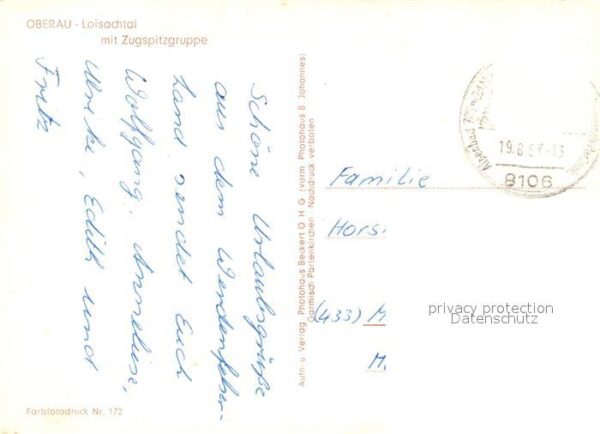 OBERAU - Loisachtal
mit Zugspitzgruppe
Schöne Urlaubsgrüße
aus dem Werdenfelser-
Land sendet Euch
Wolfgang, Annelise,
Ulrike, Edith und
Fritz
Aufn. u. Verlag Photohaus Beckert O H G (vorm. Photohaus B. Johannes)
Garmisch-Partenkirchen Nachdruck verboten
19.8.6 -13
8106
Familie
Hors
(433) M
M.
privacy protection
Datenschutz
Farbfotodruck Nr. 172